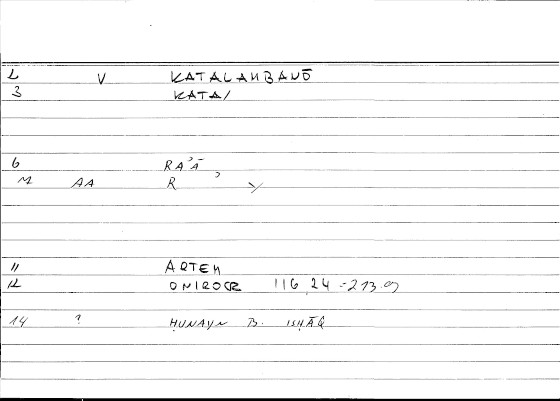 2 V KATALAMBANŌ
3 KATA/
6 RA'Ā
M AA R
11 ARTEM
12 ONIROCR 116,24 - 213.09
14 ? ḤUNAYN B. ISḤĀQ